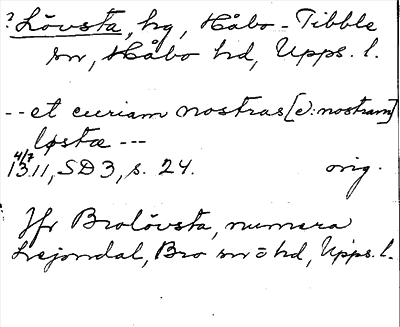 ? Lövsta, hg, Håbo-Tibble
sn, Håbo hd, Upps. l.
-- et curiam nostras [ɔ: nostram]
løstæ ---
4/7
1311, SD 3, s. 24. orig.
Jfr Brolövsta, numera
Lejondal, Bro sn o hd, Upps. l.